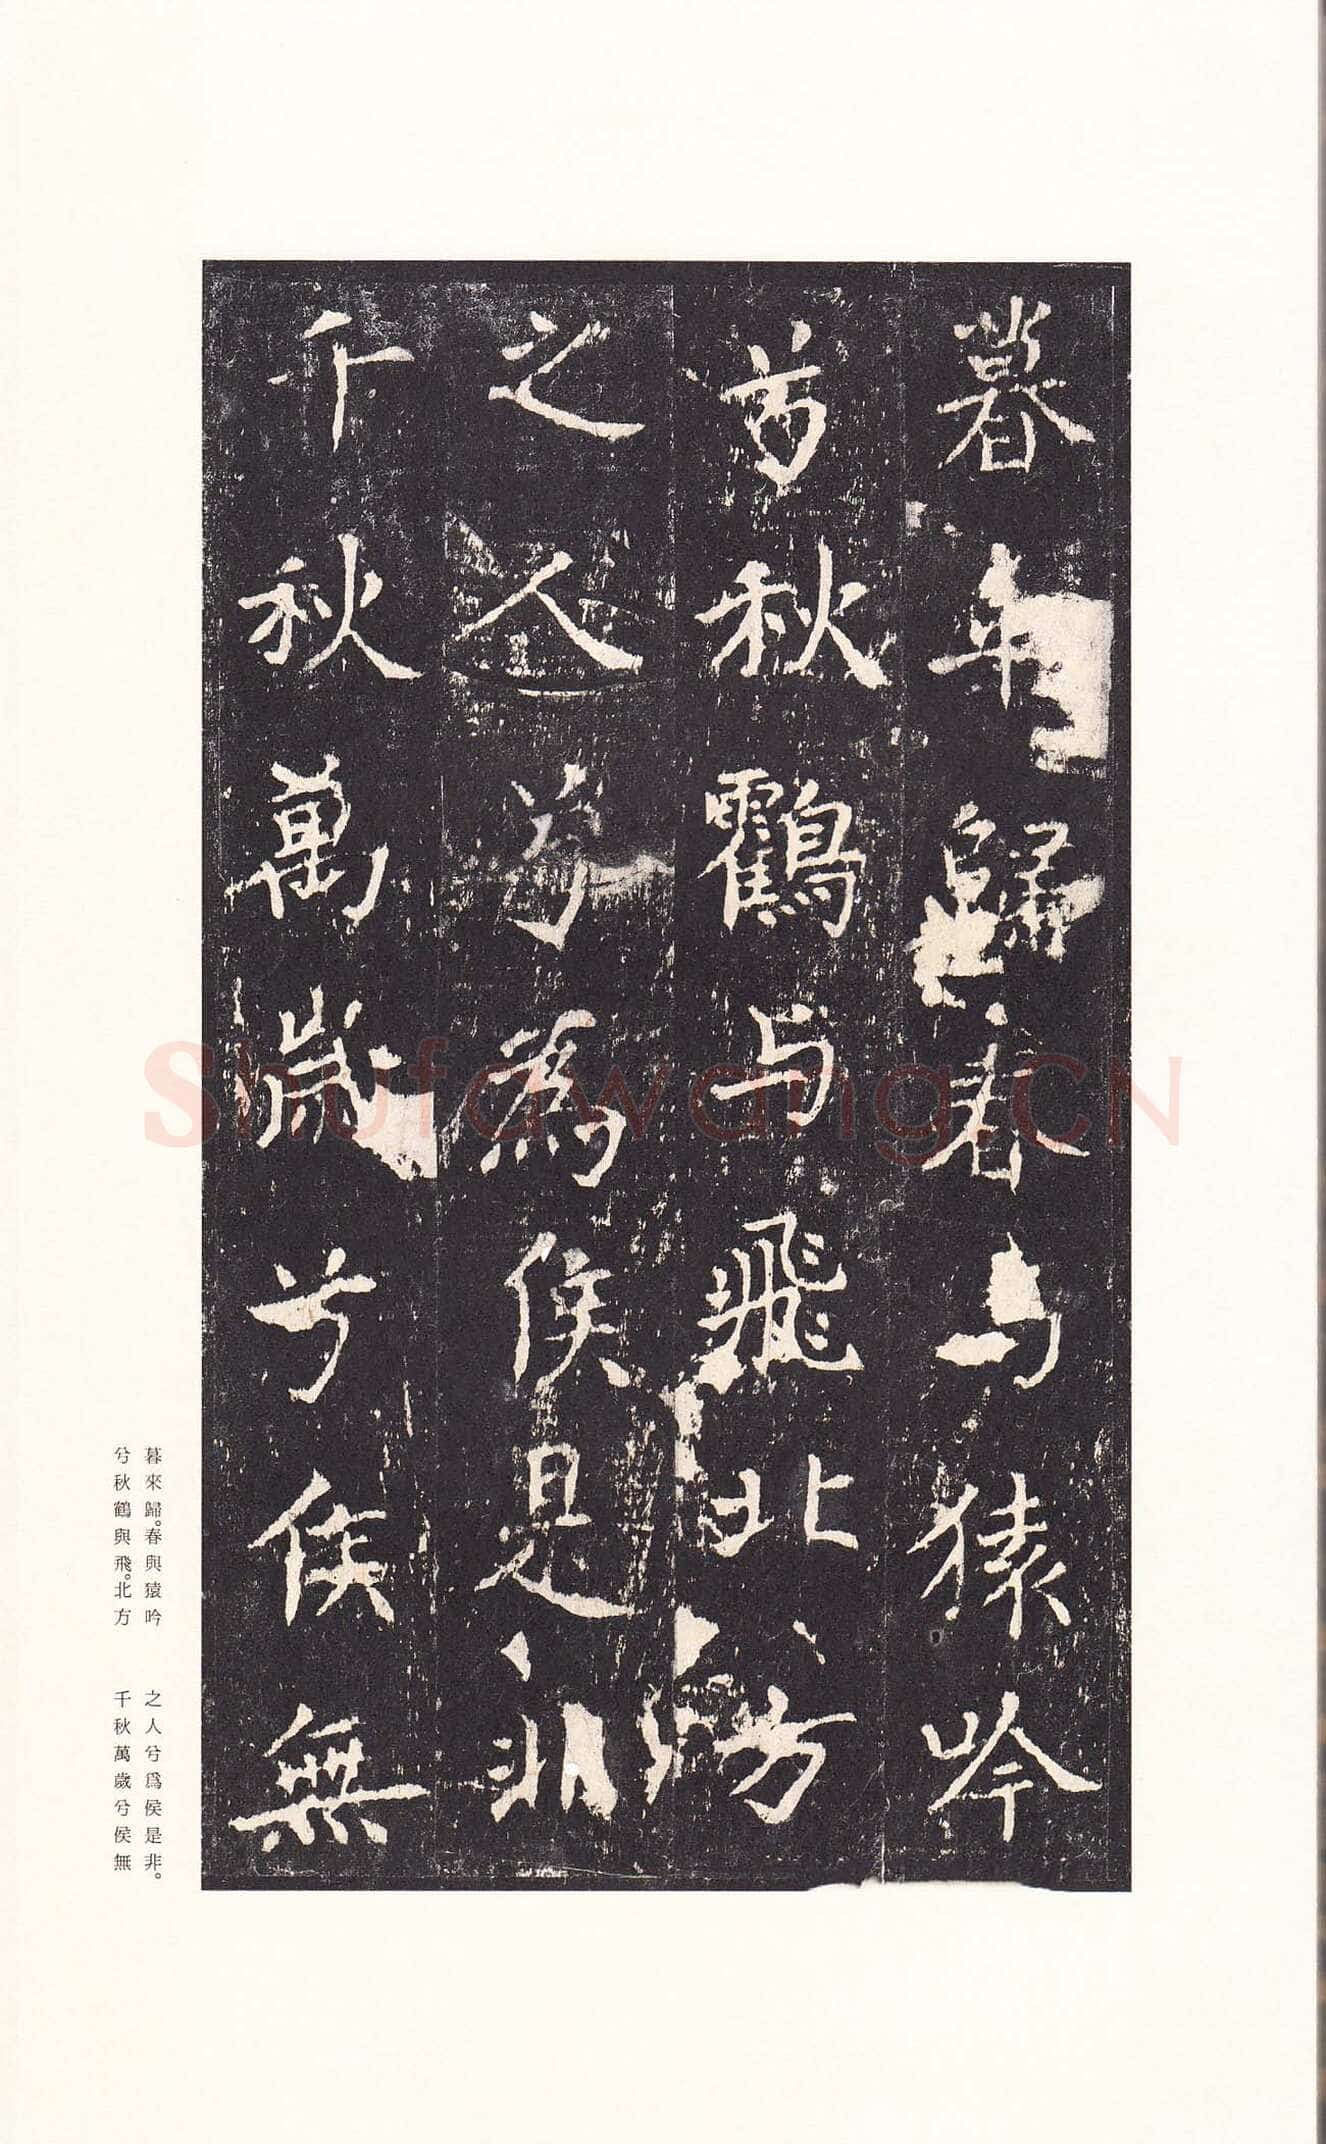 暮來歸春与猿吟
兮秋鶴与飛北方
之人兮為侯是非
千秋萬歲兮侯無
暮來歸。春與猿吟
兮秋鶴與飛。北方
之人兮爲侯是非。
千秋萬歲兮侯無
Shufawang.CN